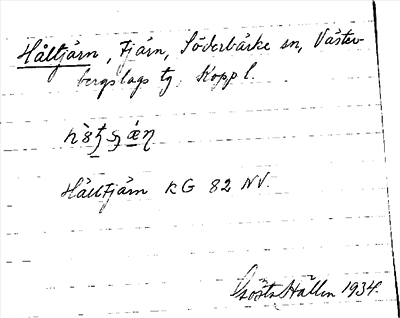 Håltjärn, tjärn, Söderbärke sn, Väster-
bergslags tg. Koppl.
Hålltjärn RG 82 NV.
Gösta Hallen 1934.